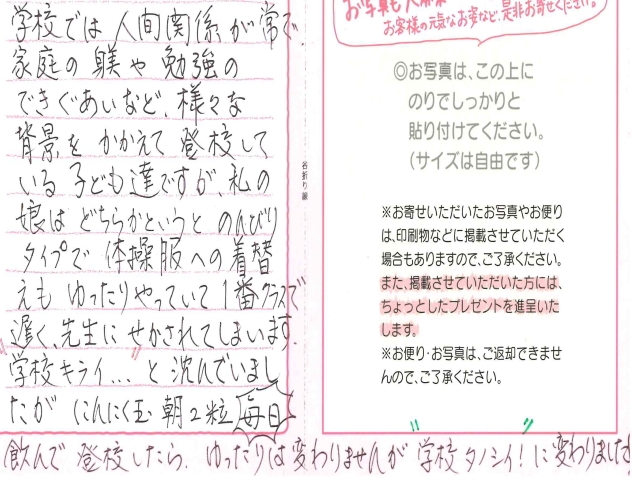 学校では人間関係が常で
家庭の躾や勉強の
できぐあいなど、様々な
背景をかかえて登校して
いる子ども達ですが、私の
娘はどちらかというとのんびり
タイプで体操服への着替
えもゆったりやっていて1番クラスで
遅く、先生にせかされてしまいます.
学校キライ...と沈んでいまし
たがにんにく玉朝2粒毎日
飲んで登校したら、ゆったりは変わりませんが学校タノシイ!に変わりました
谷折り線
お写真も大募集
お客様の元気なお姿など、是非お寄せください。
◎お写真は、この上に
のりでしっかりと
貼り付けてください。
(サイズは自由です)
※お寄せいただいたお写真やお便り
は、印刷物などに掲載させていただく
場合もありますので、ご了承ください。
また、掲載させていただいた方には、
ちょっとしたプレゼントを進呈いた
します。
※お便り・お写真は、ご返却できませ
んので、ご了承ください。